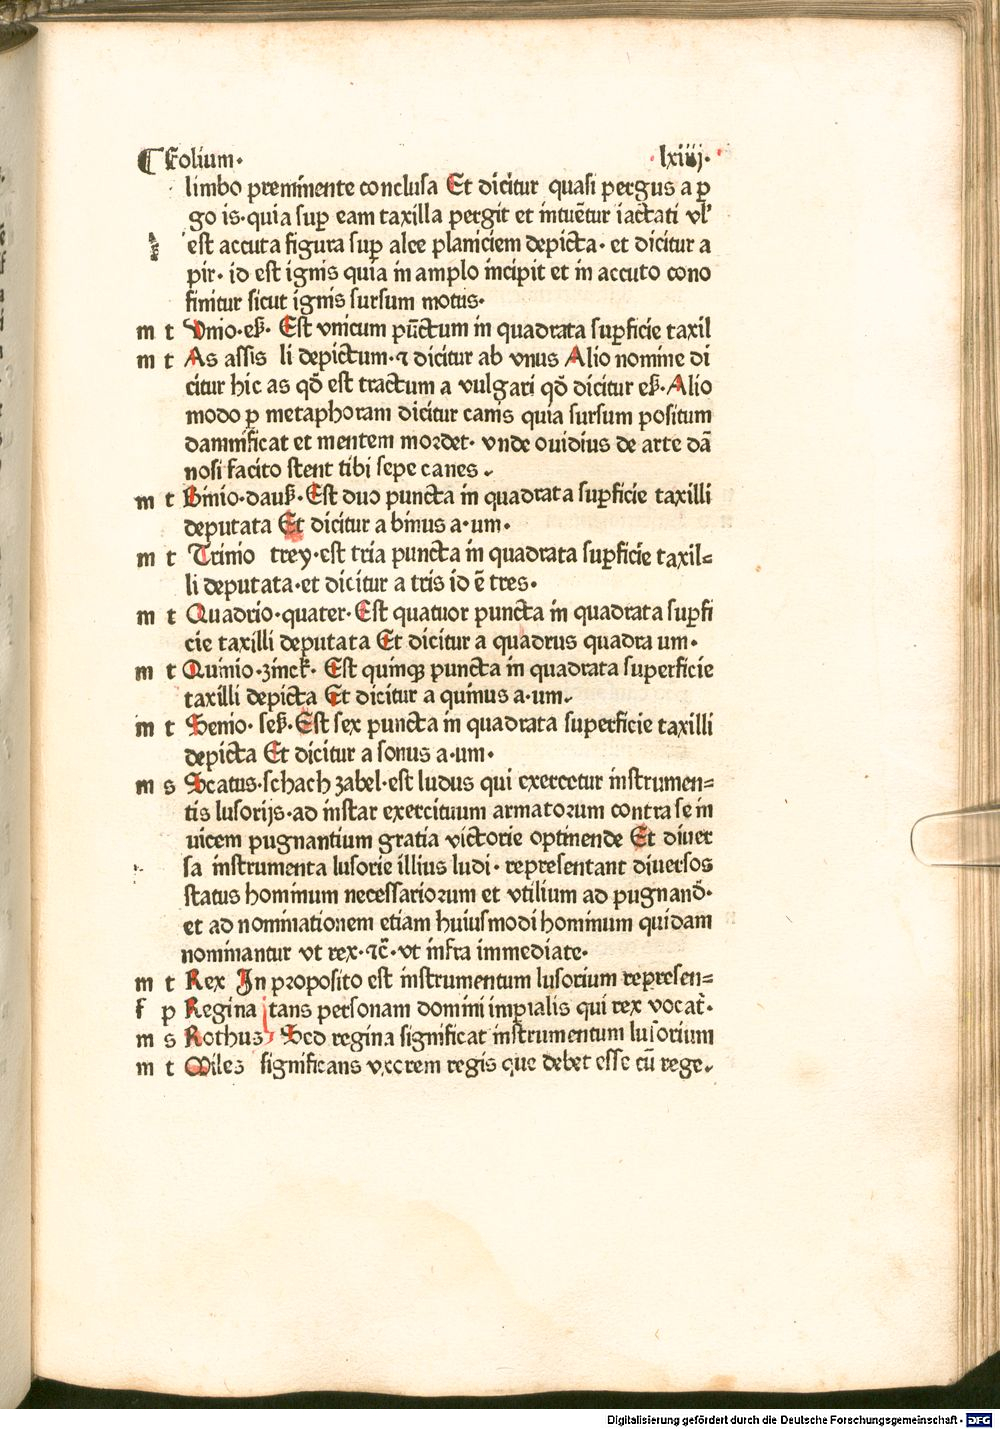 ¶ Folium· lxiiij·
limbo preminente conclusa Et dicitur quasi pergus a ꝑ
go is·quia suꝑ eam taxilla pergit et intuēƭur iactati vl'
est accuta figura suꝑ alee planiciem depicta· et dicitur a
pir· id est ignis quia in amplo incipit et in accuto cono
finitur sicut ignis sursum motus·
m t Vnio·eß· Est vnicum pūctum in quadrata suꝑficie taxil
m t As assis li depictum·⁊ dicitur ab vnus Alio nomine di
citur hic as qđ est tractum a vulgari qđ dicitur eß·Alio
modo ꝑ metaphoram dicitur canis quia sursum positum
damnificat et mentem mordet· vnde ouidius de arte dā
nosi facito stent tibi sepe canes·
m t Binio·dauß·Est duo puncta in quadrata suꝑficie taxilli
deputata Et dicitur a binus a·um·
m t Trinio trey·est tria puncta in quadrata suꝑficie taxil=
li deputata·et dicitur a tris id ē tres·
m t Quadrio·quater·Est quatuor puncta in quadrata suꝑfi
cie taxilli deputata Et dicitur a quadrus quadra um·
m t Quinio·zinck· Est quinqꝫ puncta in quadrata superficie
taxilli depicta Et dicitur a quinus a·um·
m t Senio· seß·Est sex puncta in quadrata superficie taxilli
depicta Et dicitur a sonus a·um·
m s Scatus·schach zabel·est ludus qui exercetur instrumen=
tis lusorijs·ad instar exercituum armatorum contra se in
uicem pugnantium gratia victorie optinende Et diuer
sa instrumenta lusorie illius ludi· representant diuersos
status hominum necessariorum et vtilium ad pugnanđ·
et ad nominationem etiam huiusmodi hominum quidam
nominantur vt rex·⁊c̄·vt infra immediate·
m t Rex In proposito est instrumentum lusorium represen=
f p Regina tans personam domini imꝑialis qui rex vocat᷑·
m s Rothus Sed regina significat instrumentum lusorium
m t Miles significans vxorem regis que debet esse cū rege·
Digitalisierung gefördert durch die Deutsche Forschungsgemeinschaft - DFG